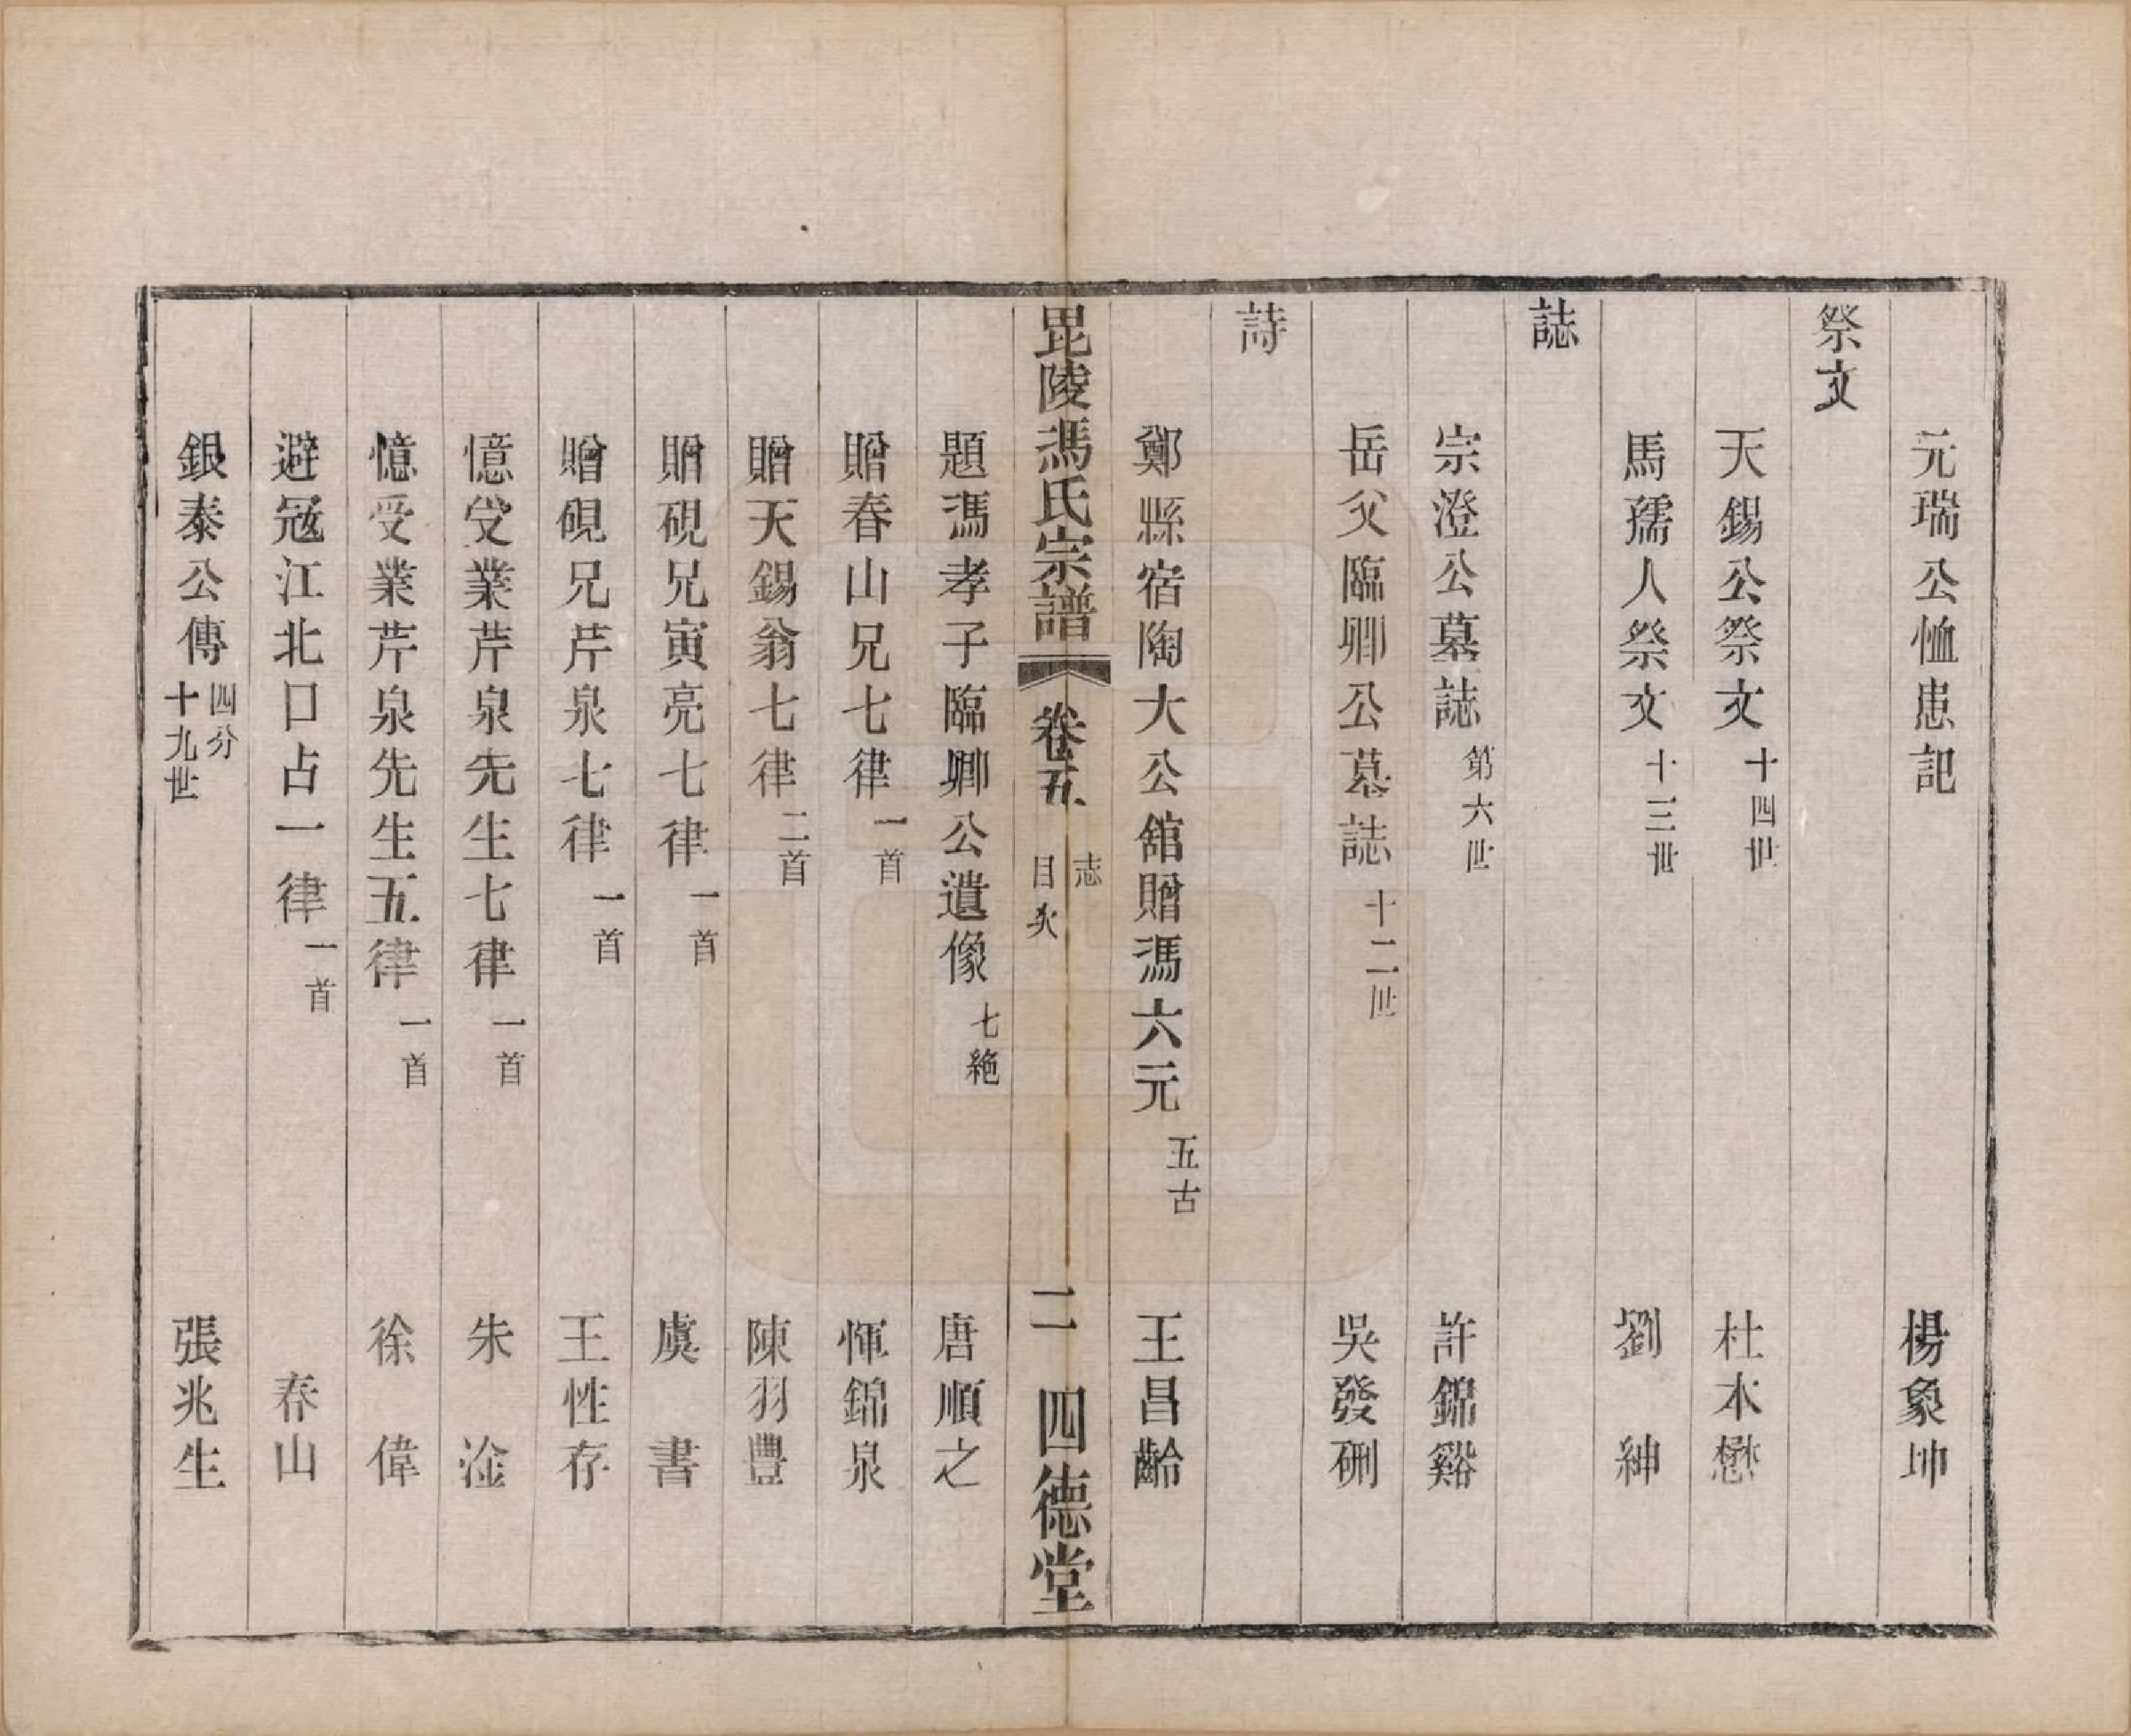 元瑞公恤患記 楊象坤
祭文
天錫公祭文 十四世 杜木懋
馬孺人祭文 十三世 劉紳
誌
宗澄公墓誌 第六世 許錦谿
岳父臨卿公墓誌 十二世 吳發硎
詩
鄭縣宿陶大公館贈馮六元 五古 王昌齡
毘陵馮氏宗譜 卷五 志目次 二 四德堂
題馮孝子臨卿公遺像 七絶 唐順之
贈春山兄七律 一首 惲錦泉
贈天錫翁七律 二首 陳羽豐
贈硯兄寅亮七律 一首 虞書
贈硯兄芹泉七律 一首 王性存
憶受業芹泉先生七律 一首 朱淦
憶受業芹泉先生五律 一首 徐偉
避寇江北口占一律 一首 春山
銀泰公傳 四分十九世 張兆生